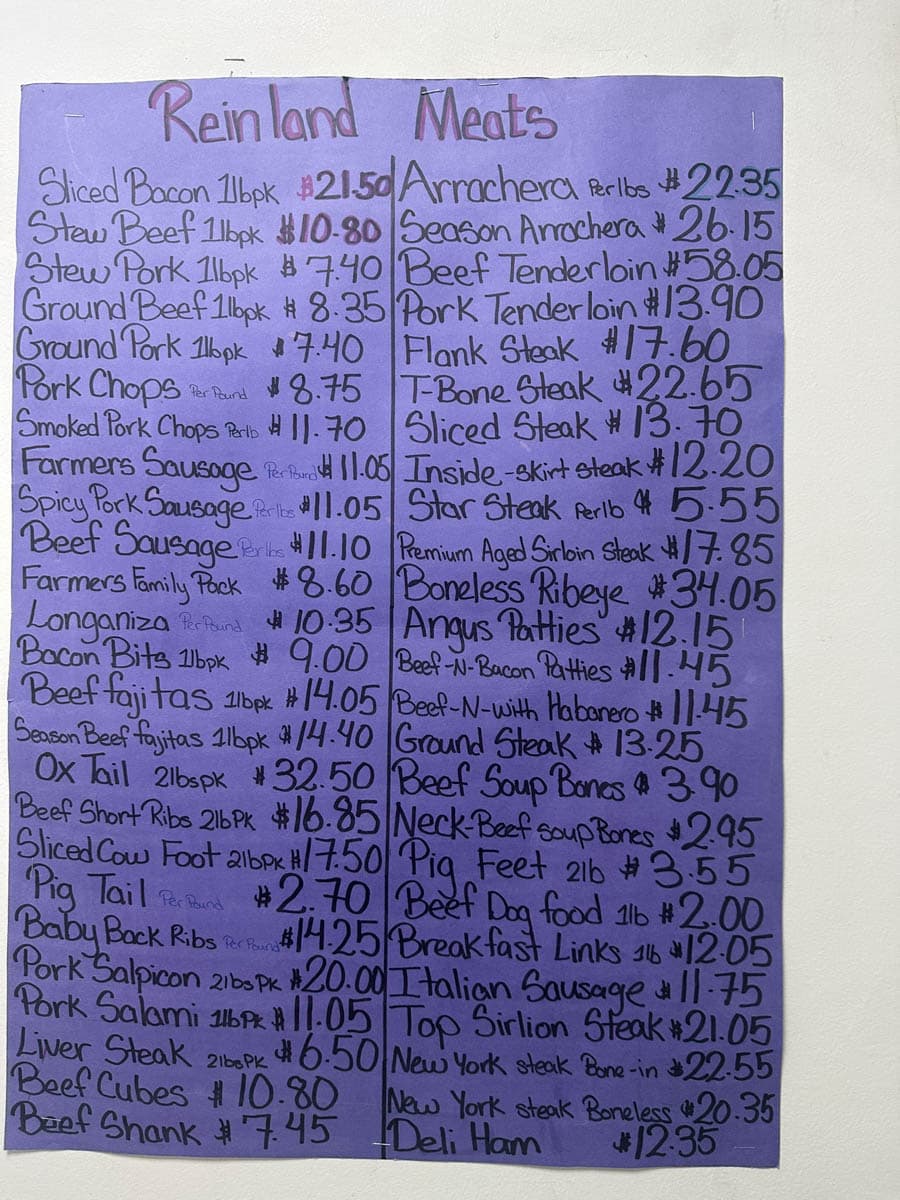 Reinland Meats
Sliced Bacon 1lbpk $21.50
Stew Beef 1lbpk $10.80
Stew Pork 1lbpk $7.40
Ground Beef 1lbpk $8.35
Ground Pork 1lbpk $7.40
Pork Chops Per Pound $8.75
Smoked Pork Chops Perlb $11.70
Farmers Sausage Per Pound $11.05
Spicy Pork Sausage Perlbs $11.05
Beef Sausage Perlbs $11.10
Farmers Family Pack $8.60
Longaniza Per Pound $10.35
Bacon Bits 1lbpk $9.00
Beef fajitas 1lbpk $14.05
Season Beef fajitas 1lbpk $14.40
Ox Tail 2lbspk $32.50
Beef Short Ribs 2lbPk $16.85
Sliced Cow Foot 2lbPK $17.50
Pig Tail Per Pound $2.70
Baby Back Ribs Per Pound $14.25
Pork Salpicon 2lbsPk $20.00
Pork Salami 1lbPk $11.05
Liver Steak 2lbsPK $6.50
Beef Cubes $10.80
Beef Shank $7.45
Arrachera Perlbs $22.35
Season Arrachera $26.15
Beef Tenderloin $58.05
Pork Tenderloin $13.90
Flank Steak $17.60
T-Bone Steak $22.65
Sliced Steak $13.70
Inside-skirt steak $12.20
Star Steak Perlb $5.55
Premium Aged Sirloin Steak $17.85
Boneless Ribeye $34.05
Angus Patties $12.15
Beef-N-Bacon Patties $11.45
Beef-N-with Habanero $11.45
Ground Steak $13.25
Beef Soup Bones $3.90
Neck-Beef soup Bones $2.95
Pig Feet 2lb $3.55
Beef Dog food 1lb $2.00
Breakfast Links 1lb $12.05
Italian Sausage $11.75
Top Sirlion Steak $21.05
New York steak Bone-in $22.55
New York steak Boneless $20.35
Deli Ham $12.35